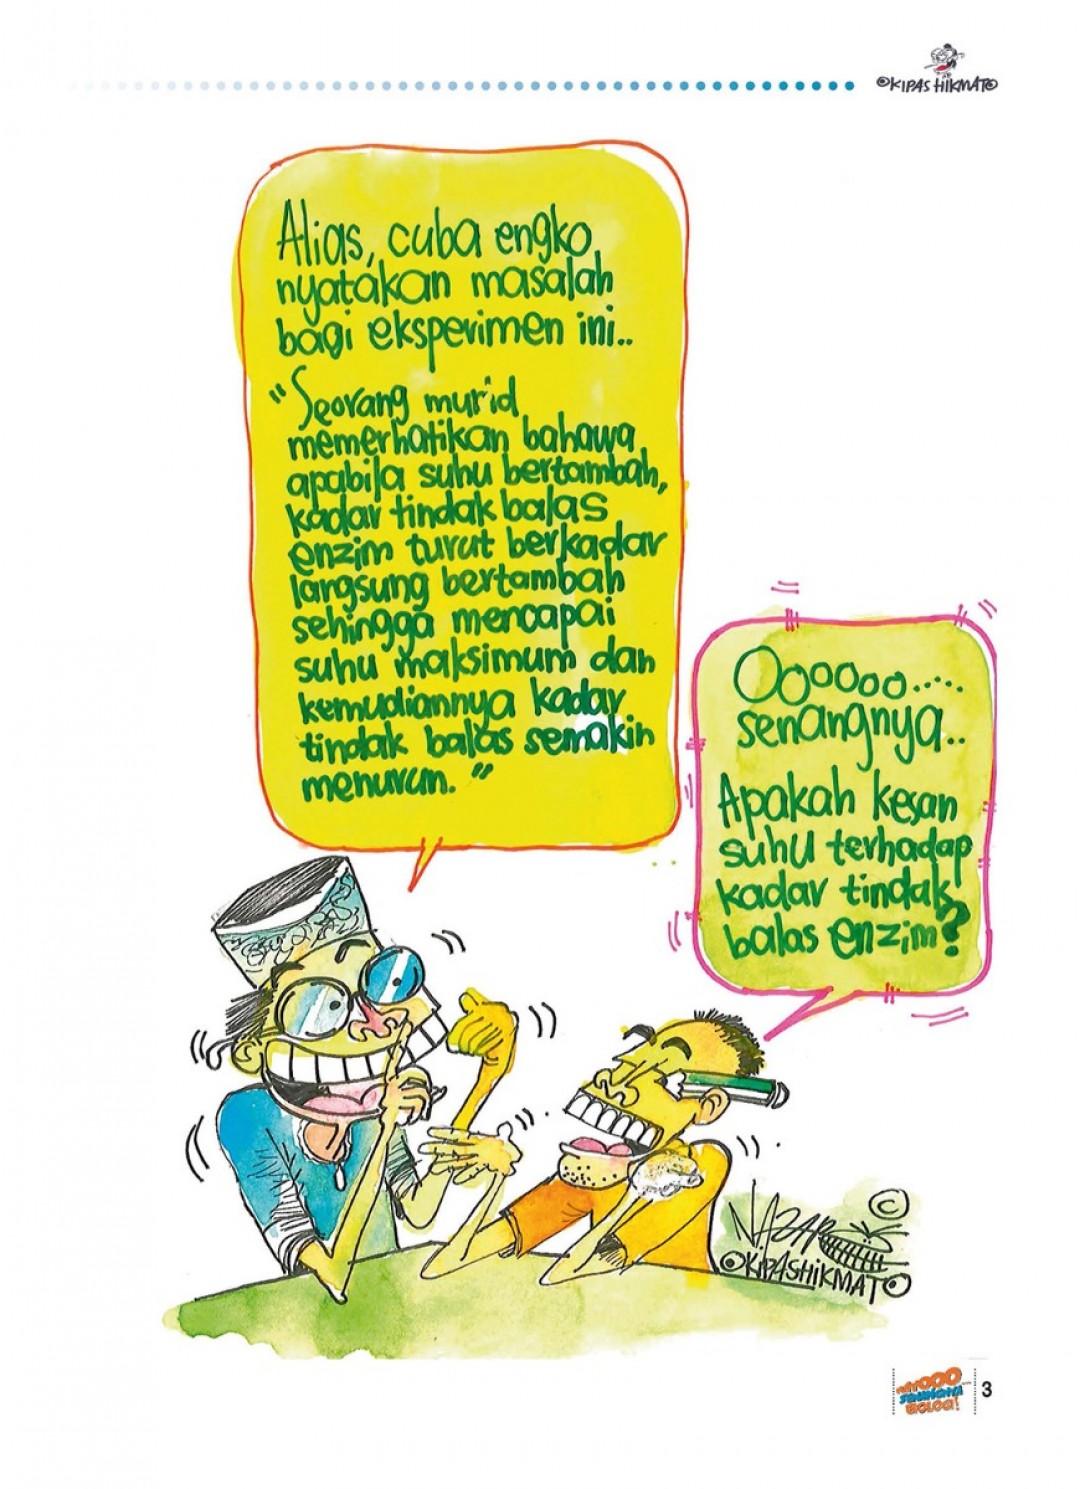 ©KIPAS HIKMATO
Alias, cuba engko
nyatakan masalah
bagi eksperimen ini..
"Seorang murid
memerhatikan bahawa
apabila suhu bertambah,
kadar tindak balas
enzim turut berkadar
largsung bertambah
sehingga mencapai
suhu maksimum dan
kemudiannya kadar
tindak balas semakin
menurun."
Oooooo.....
senangnya..
Apakah kesan
suhu terhadap
kadar tindak
balas enzim?
NAZAR ©
©KIPASHIKMATO
SENANGNYA
BIOLOGI!
3